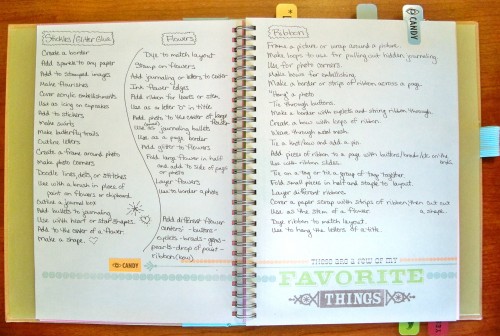 Stickles/Glitter Glue
Create a border
Add sparkle to any paper
Add to stamped images
Make flourishes
Cover acrylic embellishments
Use as icing on cupcakes
Add to stickers
Make swirls
Make butterfly trails
Outline letters
Create a frame around photo
Make photo corners
Doodle lines, dots, or stitches
Use with a brush in place of
paint on flowers or chipboard
Outline a journal box
Add bullets to journaling
Use with heart or star shapes
Add to the center of a flower
Make a shape
Flowers
Dye to match layout
Stamp on flowers
Add journaling or letters to center
Ink flower edges
Add ribbon for leaves or stem
Use as a letter "o" in title
Add photo to the center of large
flower
Use as journaling bullets
Use as a page border
Add glitter to flowers
Fold large flower in half
and add to side of page
or photo
Layer flowers
Use to border a photo
Add different flower
centers! - buttons -
crystals - brads - gems -
pearls - drop of paint -
ribbon (bow)
CANDY
Ribbon
Frame a picture or wrap around a picture.
Make loops to use for pulling out hidden journaling
Use for photo corners.
Make bows for embellishing.
Make a border or strips of ribbon across a page.
"Hang" a photo
Tie through buttons.
Make a border with eyelets and string ribbon through.
Create a bow with loops of ribbon.
Weave through wool mesh.
Tie a knot/bow and add a pin.
Add pieces of ribbon to a page with buttons/brads/etc. on the
ends.
Use with ribbon slides.
Tie on a tag or tie a group of tags together.
Fold small pieces in half and staple to layout.
Layer different ribbons.
Cover a paper scrap with strips of ribbon then cut out
a shape.
Use as the stem of a flower.
Dye ribbon to match layout.
Use to hang the letters of a title.
THESE ARE A FEW OF MY
FAVORITE
THINGS
CANDY